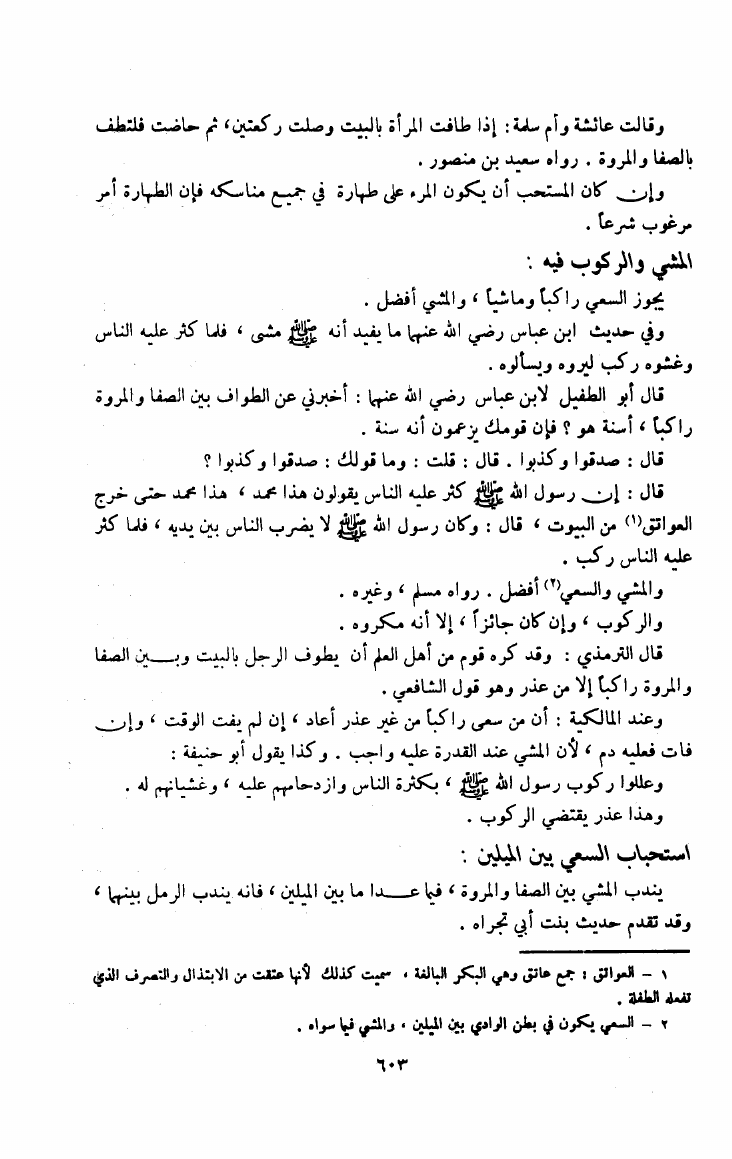 وقالت عائشة وأم سلمة: إذا طافت المرأة بالبيت وصلت ركعتين، ثم حاضت فلتطف
بالصفا والمروة . رواه سعيد بن منصور .
وإن كان المستحب أن يكون المرء على طهارة في جميع مناسكه فإن الطهارة أمر
مرغوب شرعاً .
المشي والركوب فيه :
يجوز السعي راكباً وماشياً ، والمشي أفضل .
وفي حديث ابن عباس رضي الله عنهما ما يفيد أنه ﷺ مشى ، فلما كثر عليه الناس
وغشوه ركب ليروه ويسألوه .
قال أبو الطفيل لابن عباس رضي الله عنهما : أخبرني عن الطواف بين الصفا والمروة
راكباً ، أسنة هو ؟ فإن قومك يزعمون أنه سنة .
قال : صدقوا وكذبوا . قال : قلت : وما قولك : صدقوا وكذبوا ؟
قال : إن رسول الله ﷺ كثر عليه الناس يقولون هذا محمد ، هذا محمد حتى خرج
العواتق(١) من البيوت ، قال : وكان رسول الله ﷺ لا يضرب الناس بين يديه ، فلما كثر
عليه الناس ركب .
والمشي والسعي(٢) أفضل . رواه مسلم ، وغيره .
والركوب ، وإن كان جائزاً ، إلا أنه مكروه .
قال الترمذي : وقد كره قوم من أهل العلم أن يطوف الرجل بالبيت وبين الصفا
والمروة راكباً إلا من عذر وهو قول الشافعي .
وعند المالكية : أن من سعى راكباً من غير عذر أعاد ، إن لم يفت الوقت ، وإن
فات فعليه دم ، لأن المشي عند القدرة عليه واجب . وكذا يقول أبو حنيفة :
وعللوا ركوب رسول الله ﷺ ، بكثرة الناس وازدحامهم عليه ، وغشيانهم له .
وهذا عذر يقتضي الركوب .
استحباب السعي بين الميلين :
يندب المشي بين الصفا والمروة ، فيما عدا ما بين الميلين ، فانه يندب الرمل بينهما ،
وقد تقدم حديث بنت أبي تجراه .
١ – العواتق : جمع عاتق وهي البكر البالغة ، سميت كذلك لأنها عتقت من الابتذال والتصرف الذي
تفعله الطفلة .
٢ – السعي يكون في بطن الوادي بين الميلين ، والمشي فيما سواه .
٦٠٣